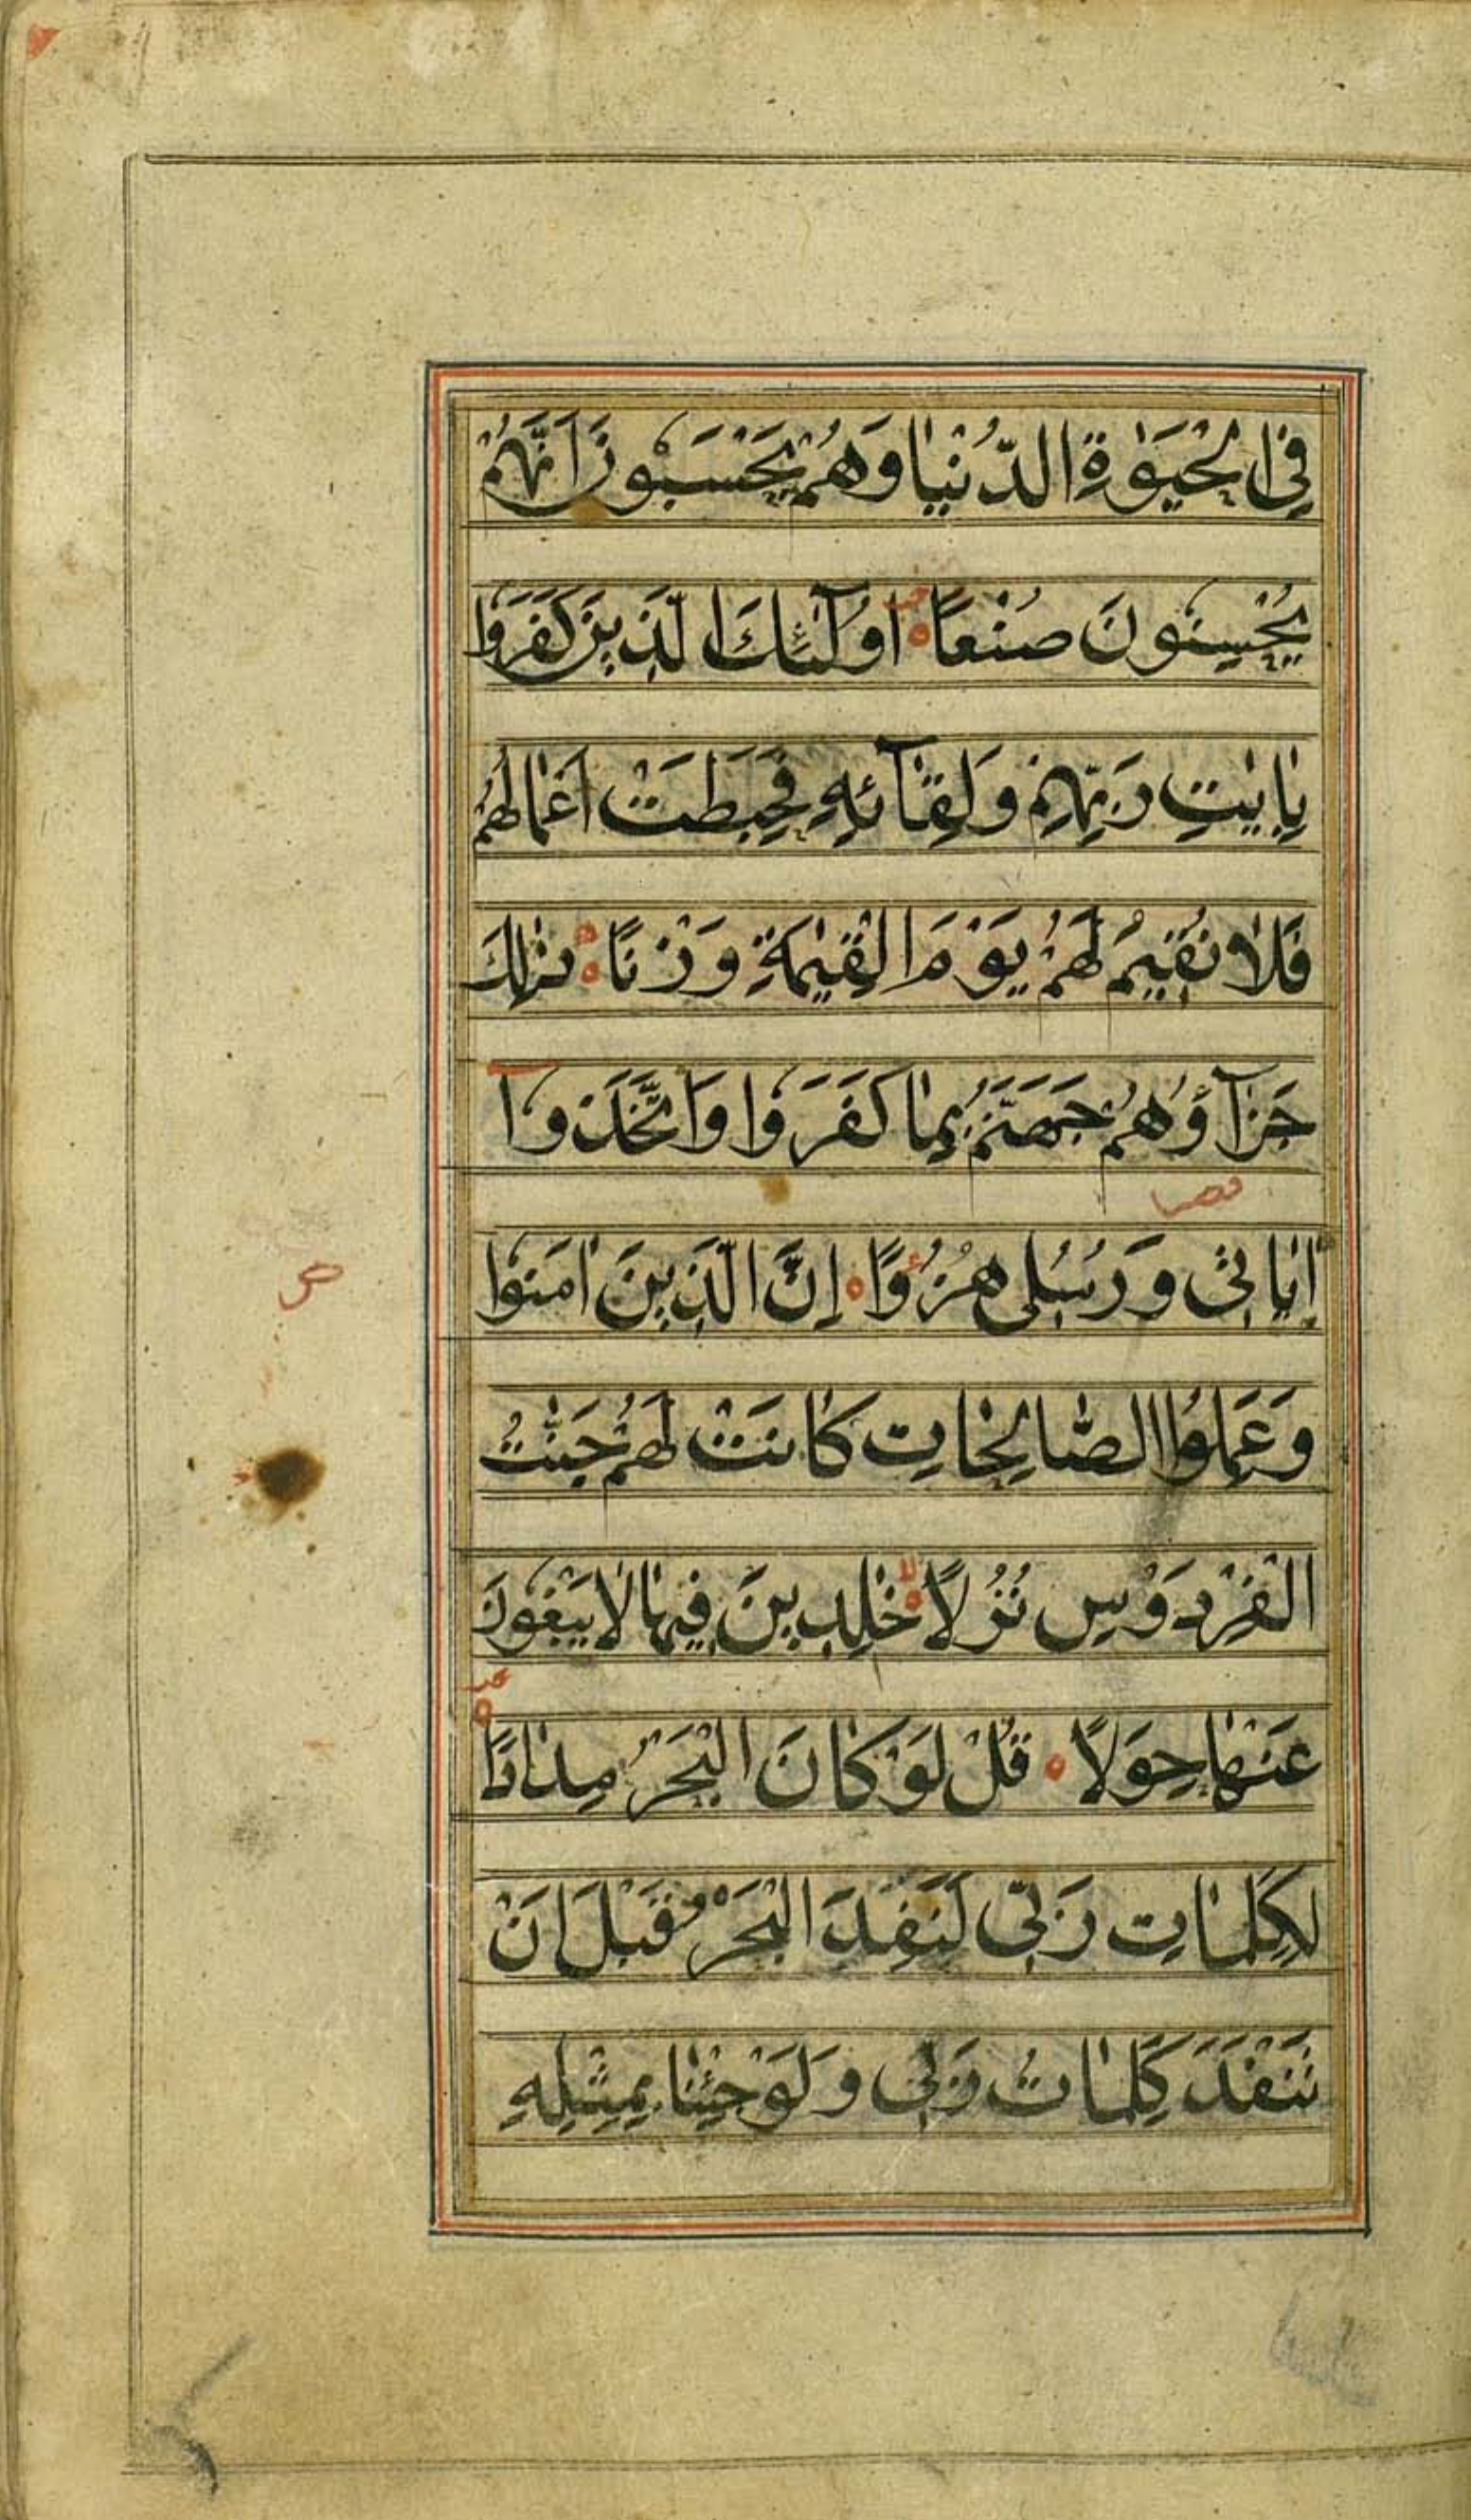 فِي الْحَيٰوةِ الدُّنْيَا وَهُمْ يَحْسَبُونَ اَنَّهُمْ
يُحْسِنُونَ صُنْعًا اُولٰٓئِكَ الَّذِينَ كَفَرُوا
بِاٰيٰتِ رَبِّهِمْ وَلِقَآئِهِ فَحَبِطَتْ اَعْمَالُهُمْ
فَلَا نُقِيمُ لَهُمْ يَوْمَ الْقِيٰمَةِ وَزْنًا ذٰلِكَ
جَزَآؤُهُمْ جَهَنَّمُ بِمَا كَفَرُوا وَاتَّخَذُوٓا
اٰيَاتِى وَرُسُلِى هُزُوًا اِنَّ الَّذِينَ اٰمَنُوا
وَعَمِلُوا الصَّالِحَاتِ كَانَتْ لَهُمْ جَنّٰتُ
الْفِرْدَوْسِ نُزُلًا خٰلِدِينَ فِيهَا لَا يَبْغُونَ
عَنْهَا حِوَلًا قُلْ لَوْ كَانَ الْبَحْرُ مِدَادًا
لِكَلِمَاتِ رَبِّى لَنَفِدَ الْبَحْرُ قَبْلَ اَنْ
تَنْفَدَ كَلِمَاتُ رَبِّى وَلَوْ جِئْنَا بِمِثْلِهِ